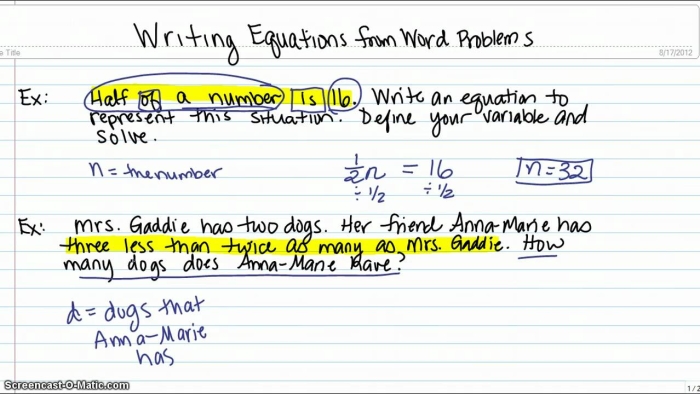 Writing Equations from Word Problems
e Title
8/17/2012
Ex: Half of a number is 16. Write an equation to
represent this situation. Define your variable and
solve.
n = the number
1/2 n = 16
÷ 1/2 ÷ 1/2
n = 32
Ex: Mrs. Gaddie has two dogs. Her friend Anna-Marie has
three less than twice as many as Mrs. Gaddie. How
many dogs does Anna-Marie have?
d = dogs that
Anna-Marie
has
Screencast-O-Matic.com
1/2